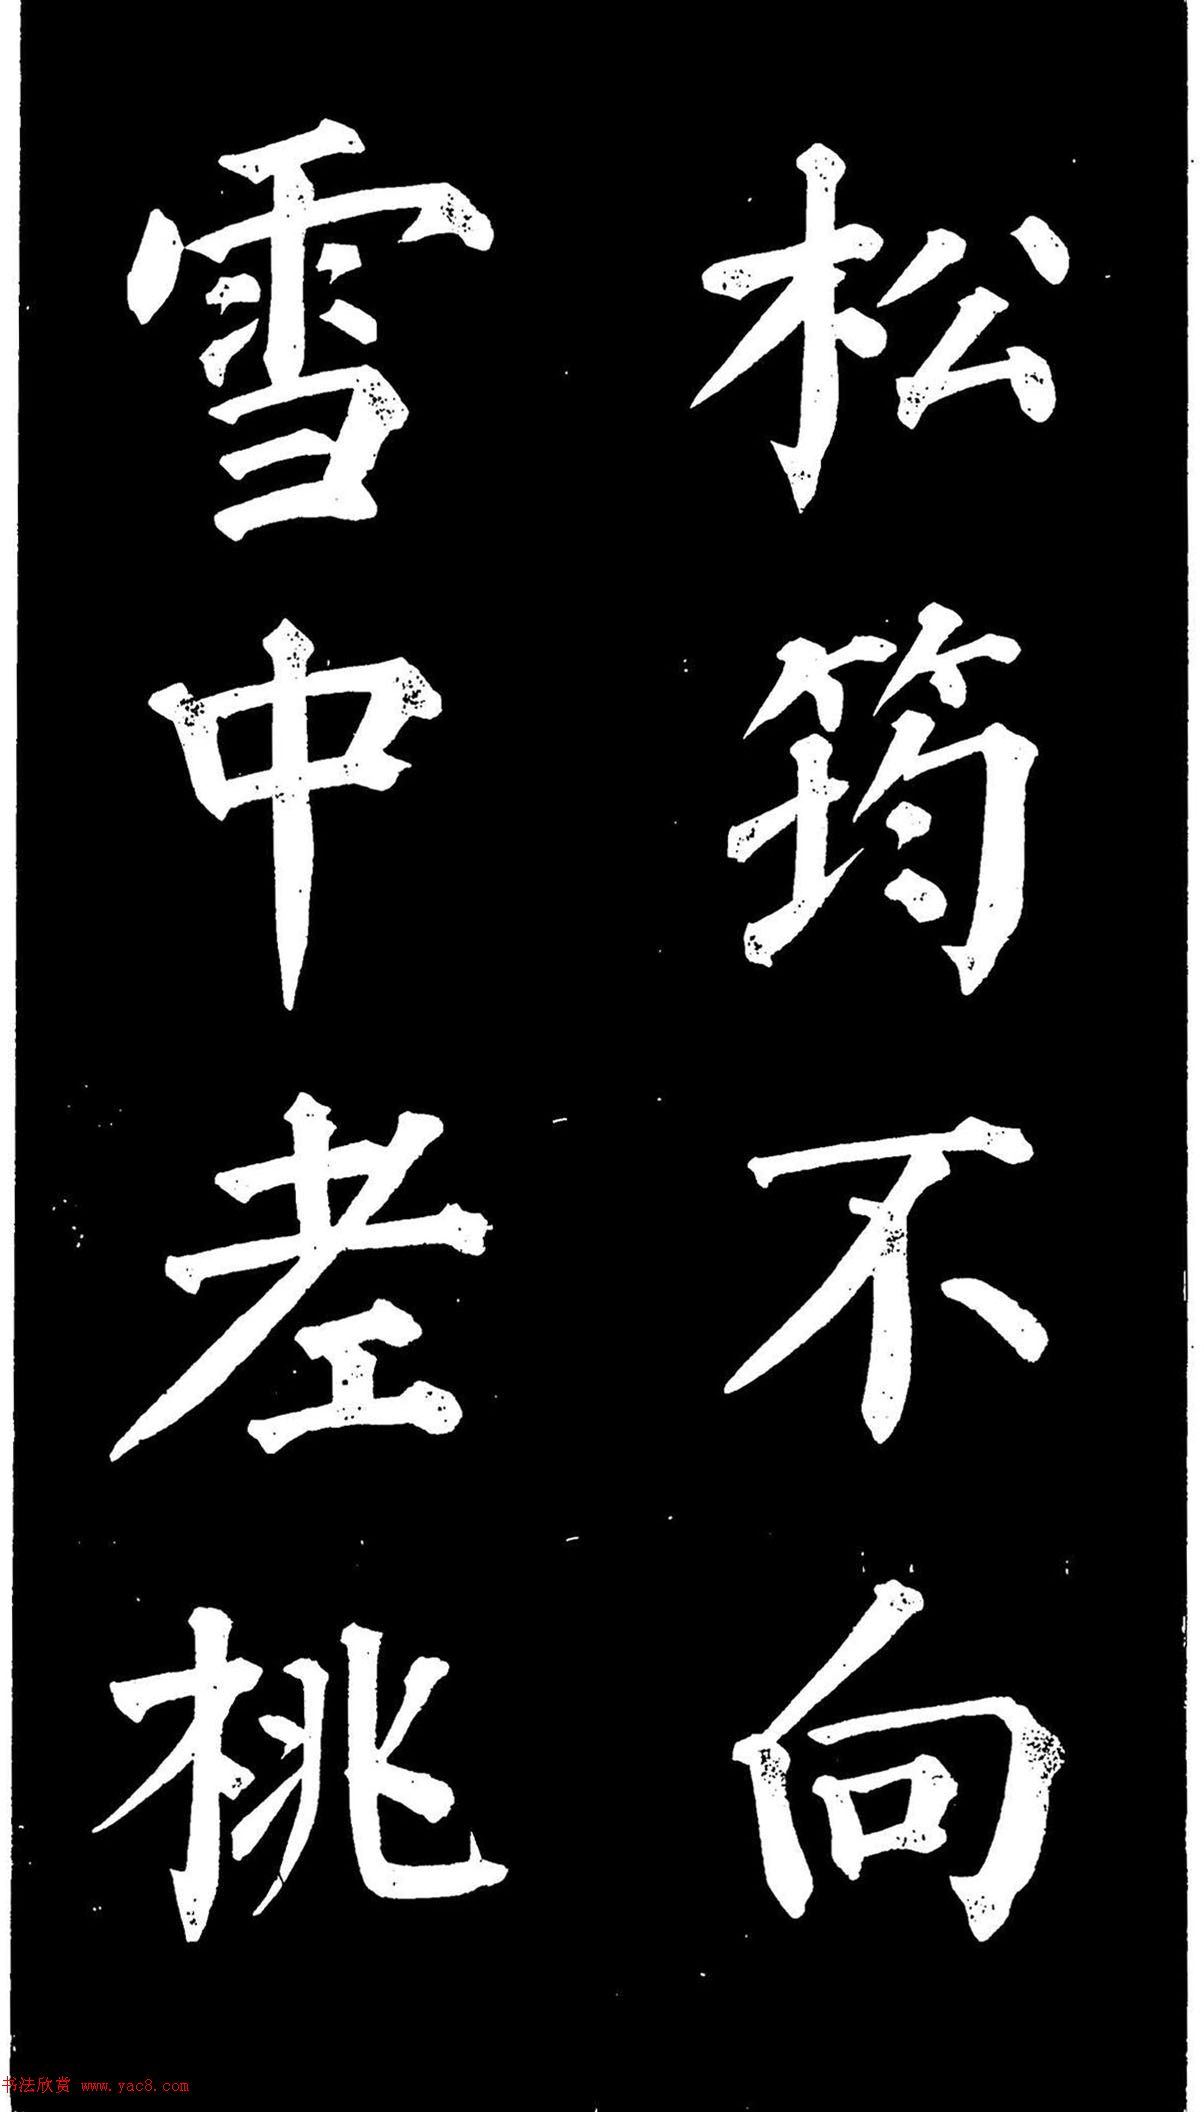 松筠不向
雪中老桃
书法欣赏 www.yac8.com